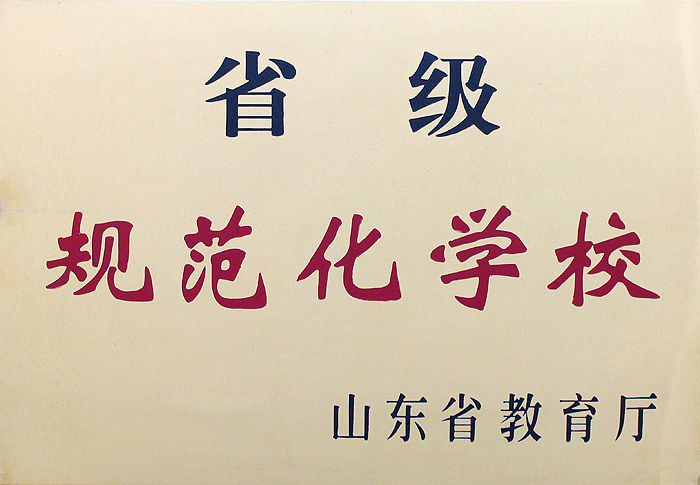 省级
规范化学校
山东省教育厅